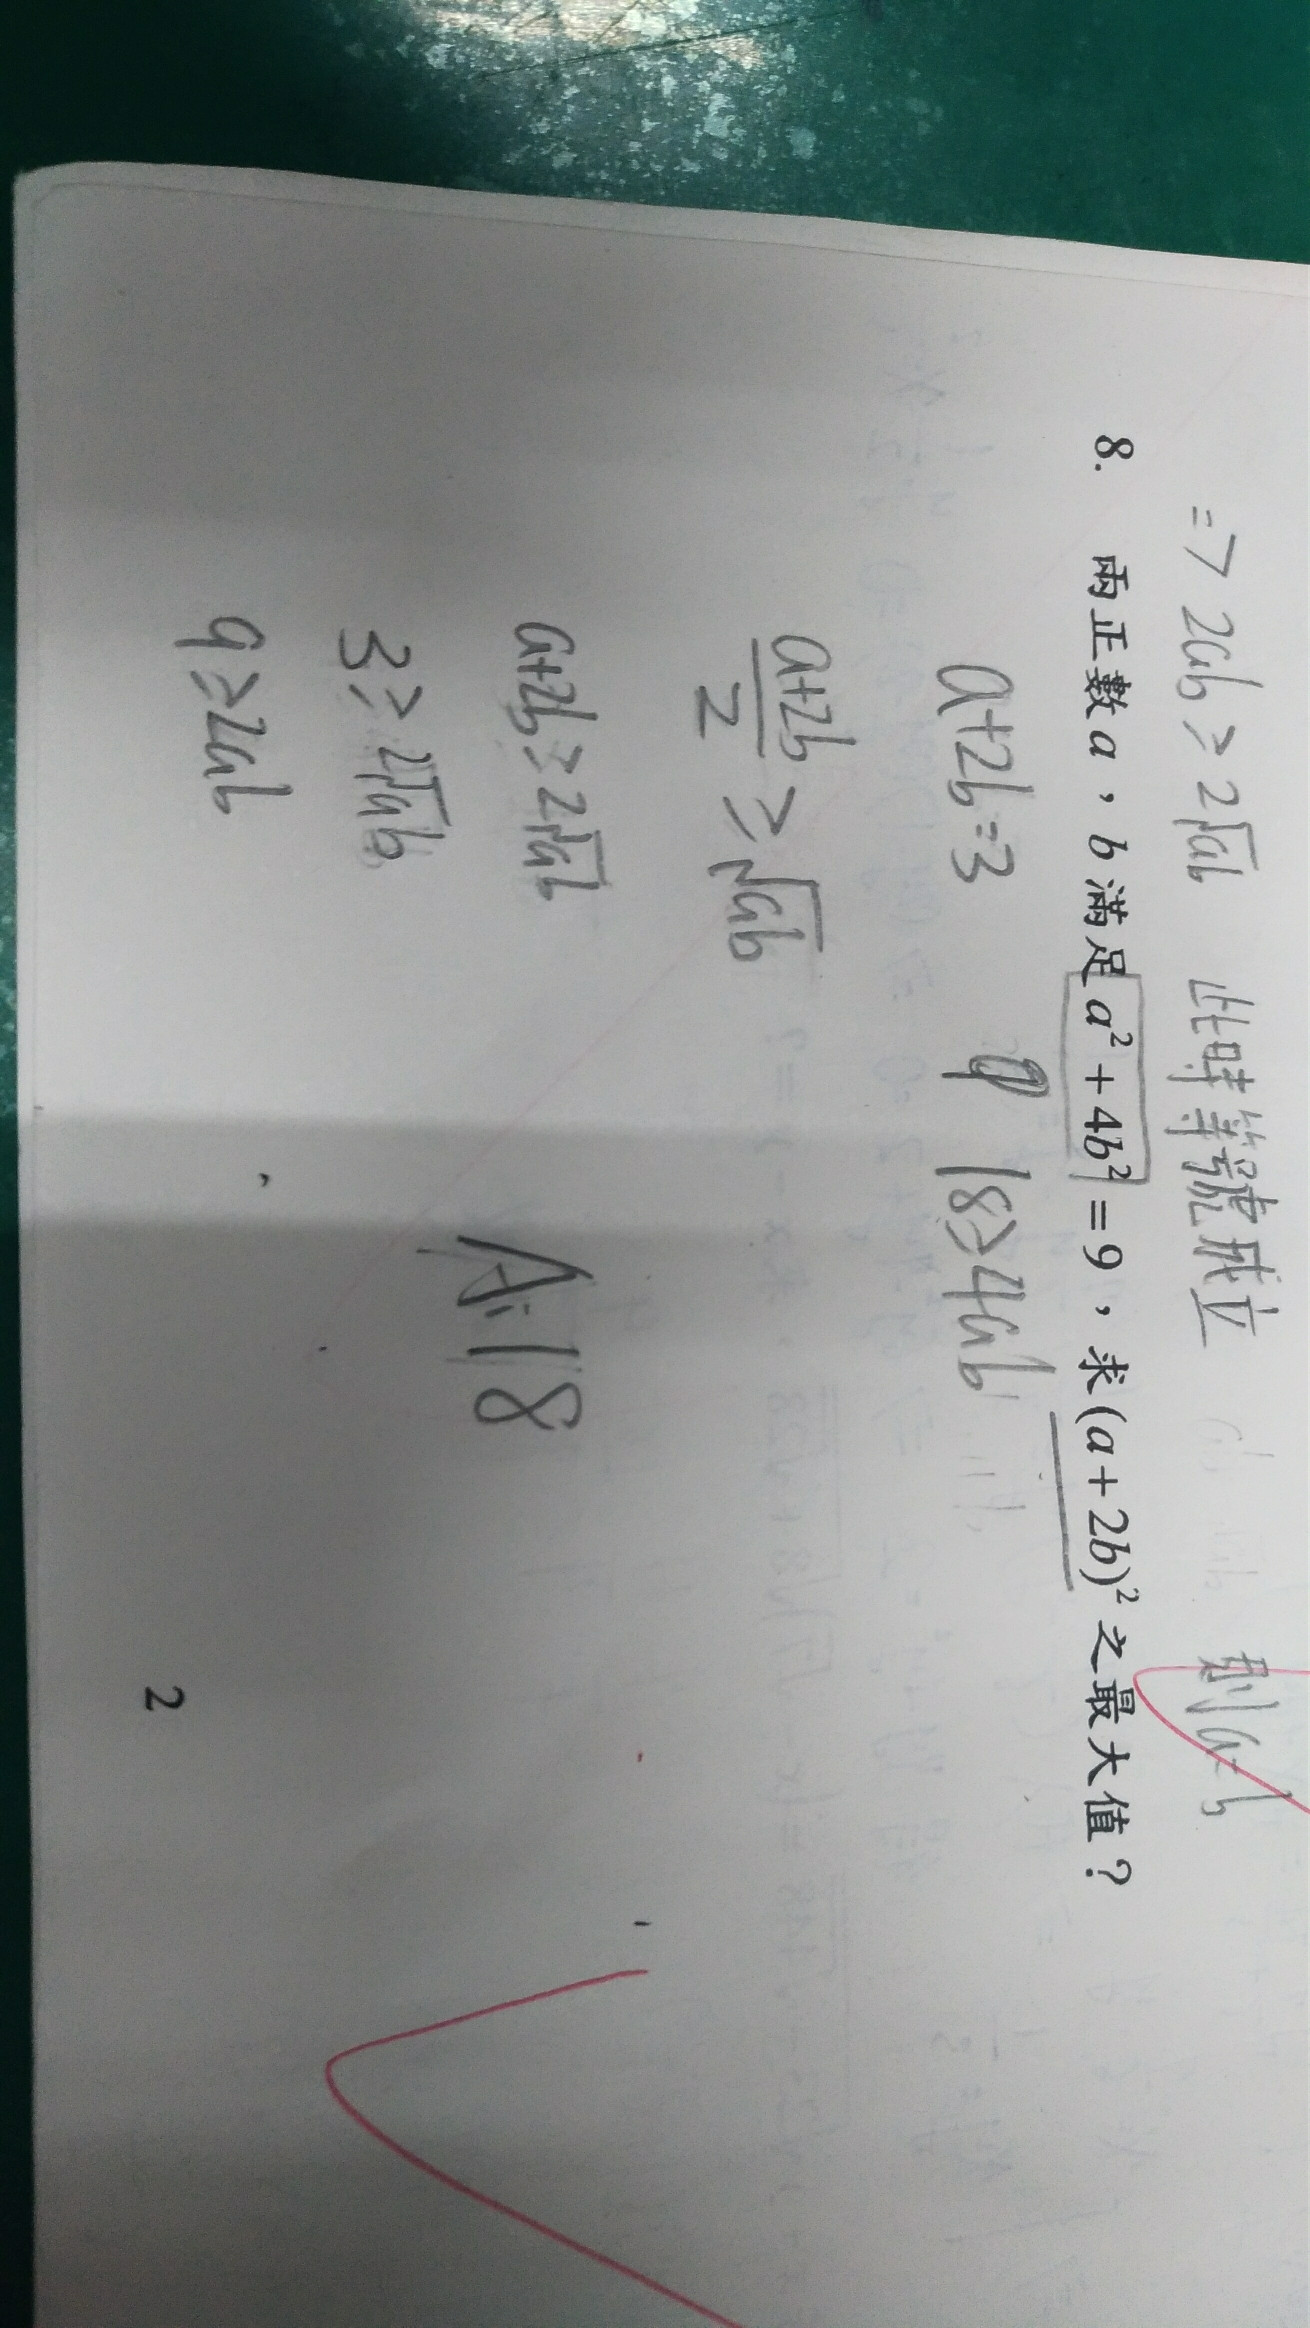 => 2ab ≥ 2√ab 此時等號成立 則a=b
8. 兩正數a，b滿足a²+4b²=9，求(a+2b)²之最大值？
a+2b=3 9 18≥4ab
a+2b/2 ≥ √ab
a+2b≥2√ab
3≥2√ab
9≥2ab
A:18
2